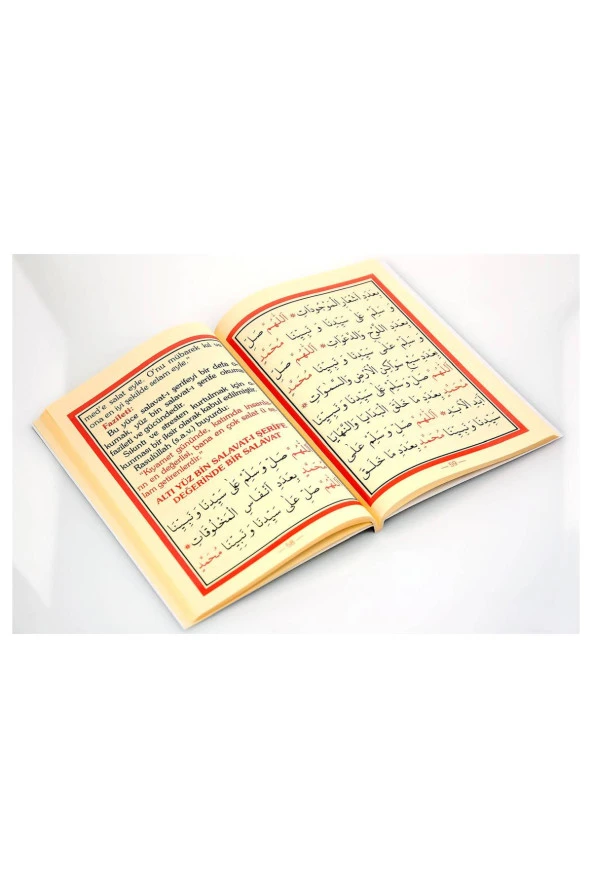 med'e salat eyle. O'nu mübarek kıl ve
ona en iyi şekilde selam eyle."
Fazileti:
Bu yüce salavat-ı şerifeyi bir defa o
kumak, yüz bin salavat-ı şerife okuma
fazileti ve gücündedir.
Sıkıntı ve stresten kurtulmak için o
kunması bir iksir olarak kabul edilmiştir.
Rasûlüllah (s.a.v.) buyurdu:
"Kıyamet gününde, katımda insanla
rın en değerlisi, bana en çok salât ü se
lam getirenlerdir."
ALTI YÜZ BİN SALAVAT-I ŞERİFE
DEĞERİNDE BİR SALAVAT
اَللّٰهُمَّ صَلِّ وَسَلِّمْ عَلٰى سَيِّدِنَا وَنَبِيِّنَا
مُحَمَّدٍ بِعَدَدِ اَنْفَاسِ الْمَخْلُوقَاتِ *
اَللّٰهُمَّ صَلِّ عَلٰى سَيِّدِنَا وَنَبِيِّنَا مُحَمَّدٍ
— 58 —
بِعَدَدِ اَشْعَارِ الْمَوْجُودَاتِ * اَللّٰهُمَّ صَلِّ
وَسَلِّمْ عَلٰى سَيِّدِنَا وَ نَبِيِّنَا مُحَمَّدٍ
بِعَدَدِ اللَّوْحِ وَالدَّعَوَاتِ * اَللّٰهُمَّ صَلِّ
وَسَلِّمْ عَلٰى سَيِّدِنَا وَنَبِيِّنَا مُحَمَّدٍ
بِعَدَدِ سَوَاكِنِ الْاَرْضِ وَالسَّمٰوَاتِ *
اَللّٰهُمَّ صَلِّ وَسَلِّمْ عَلٰى سَيِّدِنَا وَنَبِيِّنَا
مُحَمَّدٍ بِعَدَدِ مَا خَلَقَ
اَبَدَ الْاٰبِدِ * اَللّٰهُمَّ صَلِّ وَسَلِّمْ عَلٰى
سَيِّدِنَا وَ نَبِيِّنَا مُحَمَّدٍ بِعَدَدِ مَا خَلَقَ
— 59 —